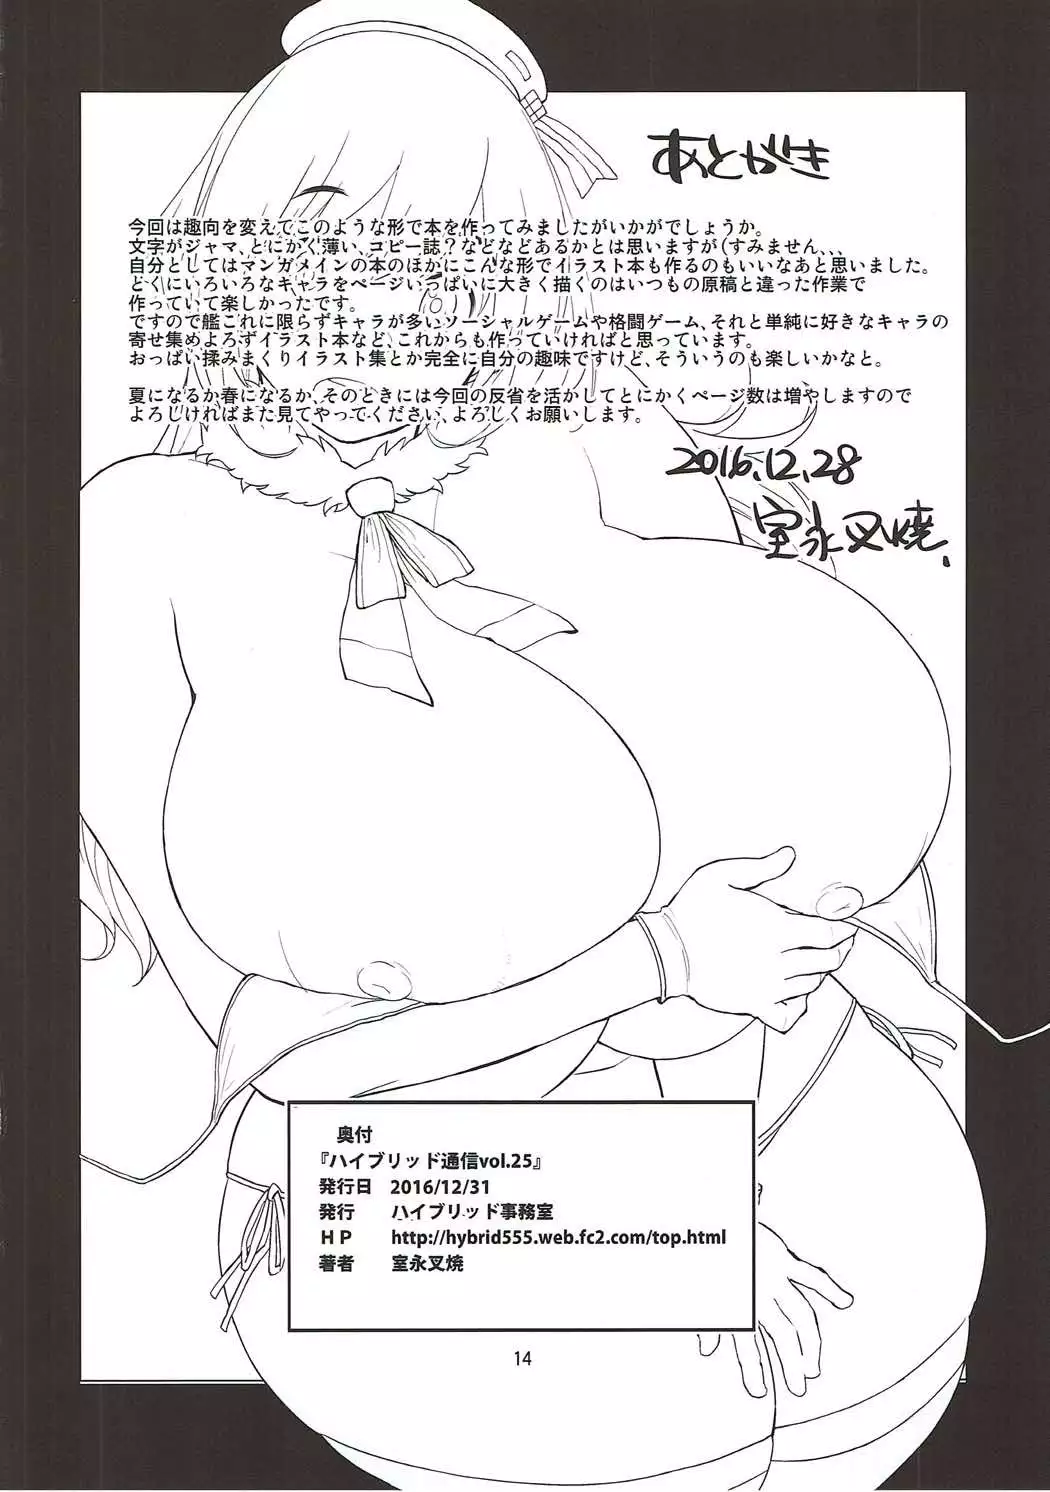 あとがき
今回は趣向を変えてこのような形で本を作ってみましたがいかがでしょうか。
文字がジャマ、とにかく薄い、コピー誌？などなどあるかとは思いますが(すみません、、、
自分としてはマンガメインの本のほかにこんな形でイラスト本も作るのもいいなあと思いました。
とくにいろいろなキャラをページいっぱいに大きく描くのはいつもの原稿と違った作業で
作っていて楽しかったです。
ですので艦これに限らずキャラが多いソーシャルゲームや格闘ゲーム、それと単純に好きなキャラの
寄せ集めよろずイラスト本など、これからも作っていければと思っています。
おっぱい揉みまくりイラスト集とか完全に自分の趣味ですけど、そういうのも楽しいかなと。
夏になるか春になるか、そのときには今回の反省を活かしてとにかくページ数は増やしますので
よろしければまた見てやってください、よろしくお願いします。
2016.12.28
室永叉焼
奥付
『ハイブリッド通信vol.25』
発行日 2016/12/31
発行 ハイブリッド事務室
ＨＰ http://hybrid555.web.fc2.com/top.html
著者 室永叉焼
14